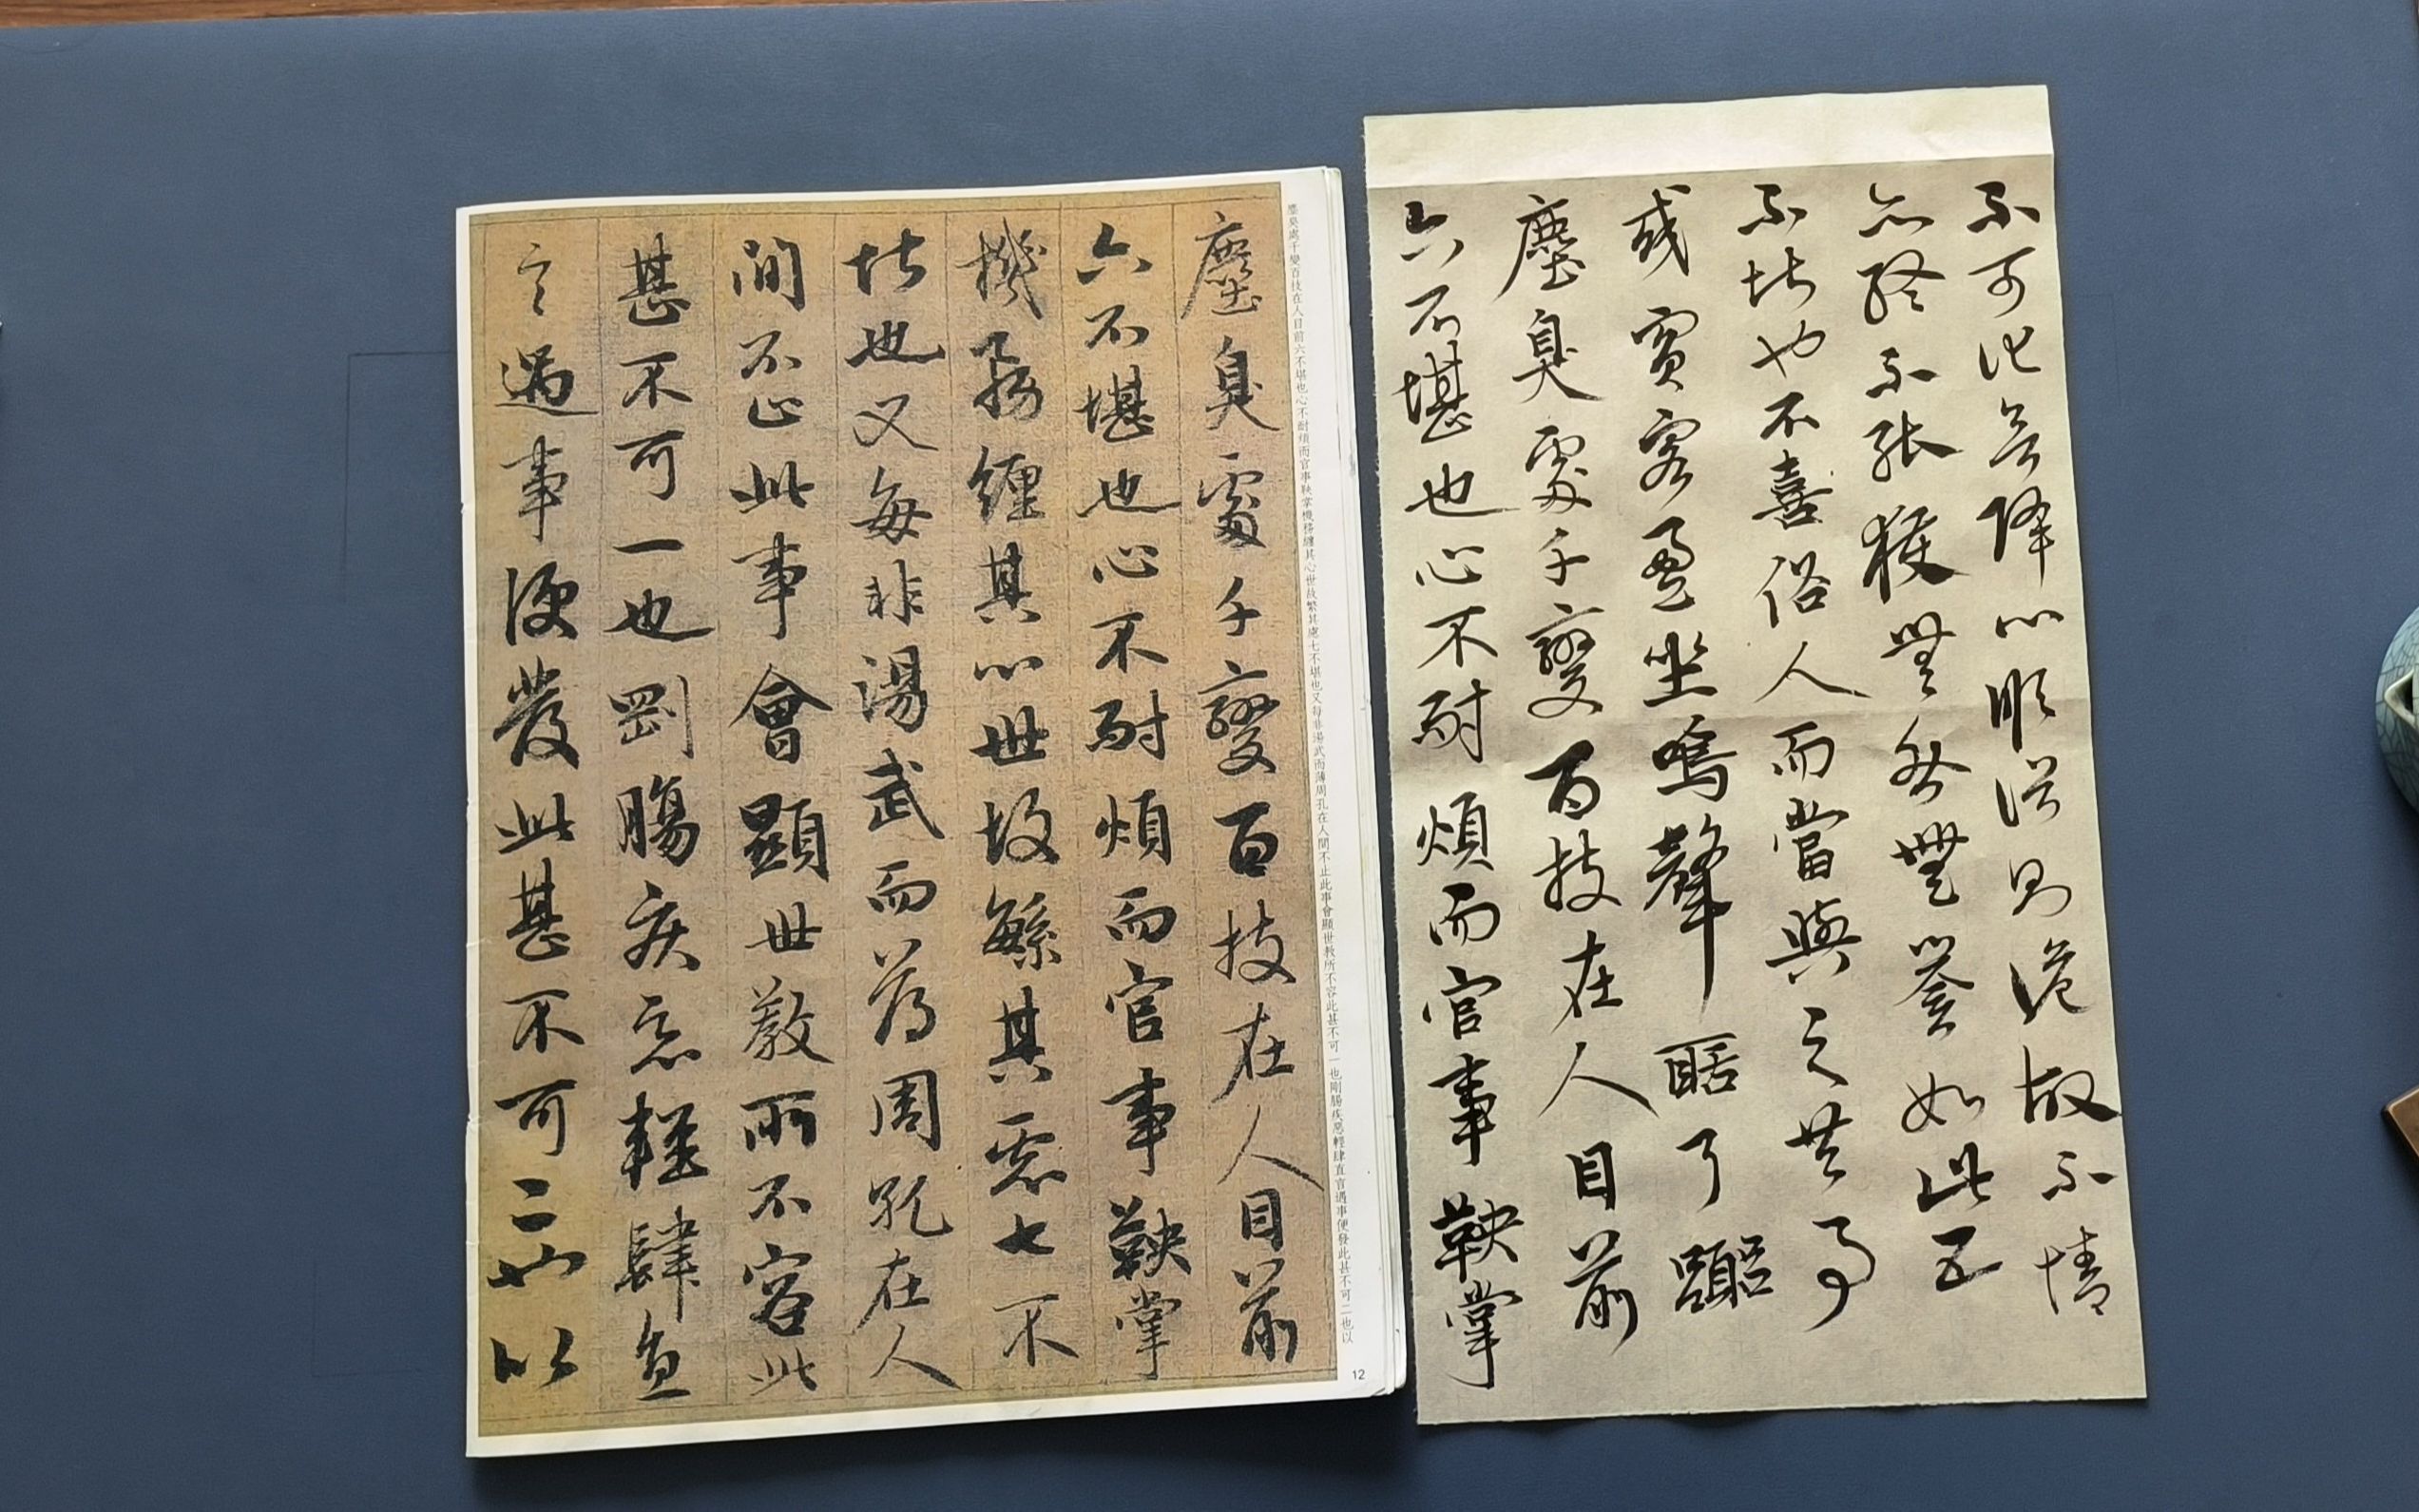 不可化欲降心順俗則詭故不情
亦終不能獲無咎無譽如此五
不堪也不喜俗人而當與之共事
或賓客盈坐鳴聲聒耳囂
塵臭處千變百技在人目前
六不堪也心不耐煩而官事鞅掌
塵臭處千變百技在人目前六不堪也心不耐煩而官事鞅掌機務纏其心世故繁其慮七不堪也又每非湯武而薄周孔在人間不止此事會顯世教所不容此甚不可一也剛腸疾惡輕肆直言遇事便發此甚不可二也以
12
塵臭處千變百技在人目前
六不堪也心不耐煩而官事鞅掌
機務纏其心世故繁其慮七不
堪也又每非湯武而薄周孔在人
間不止此事會顯世教所不容此
甚不可一也剛腸疾惡輕肆直
言遇事便發此甚不可二也以